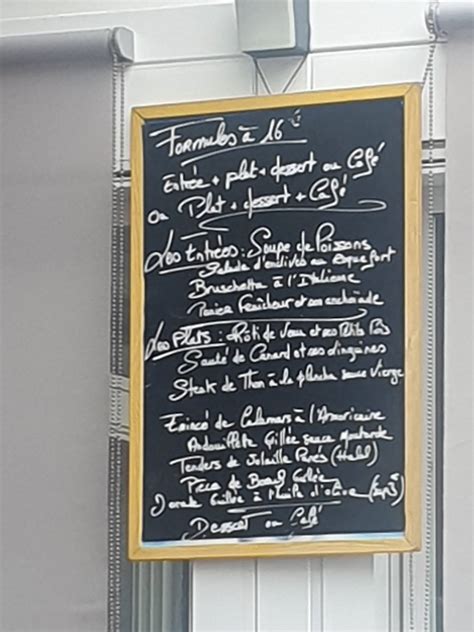 Formules à 16 €
Entrée + plat + dessert ou Café
ou Plat + dessert + Café
Les Entrées : Soupe de Poissons
Salade d'endives au Roquefort
Bruschetta à l'Italienne
Panier Fraîcheur et son anchoïade
Les Plats : Rôti de Veau et ses Petits Pois
Sauté de Canard et ses linguines
Steak de Thon à la plancha sauce Vierge
Emincé de Calamars à l'Armoricaine
Andouillette Grillée sauce Moutarde
Tenders de Volaille Panés (Halal)
Pièce de Bœuf Grillée
Dorade Grillée à l'huile d'olive
Dessert ou Café